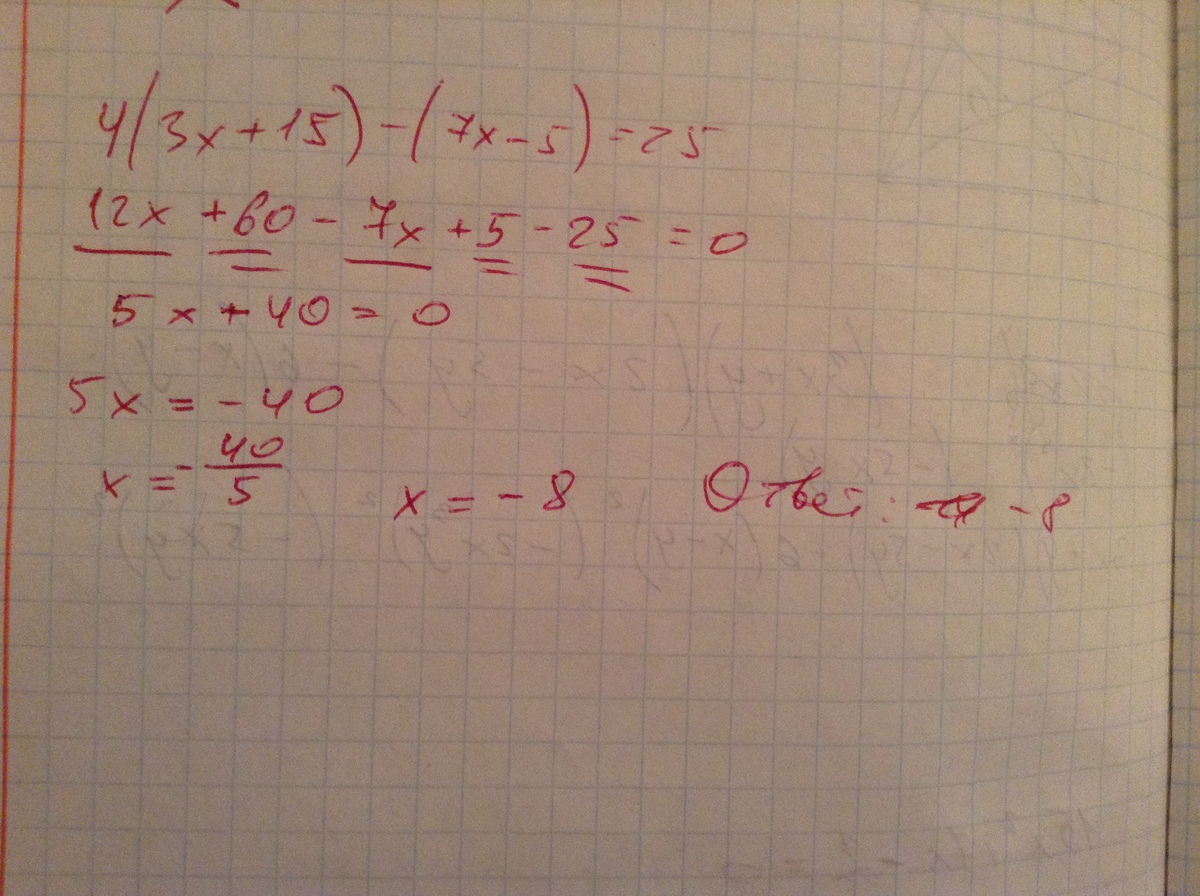 4(3x+15)-(7x-5)=25
12x+60-7x+5-25=0
5x+40=0
5x=-40
x=-40/5 x=-8 Ответ: -8